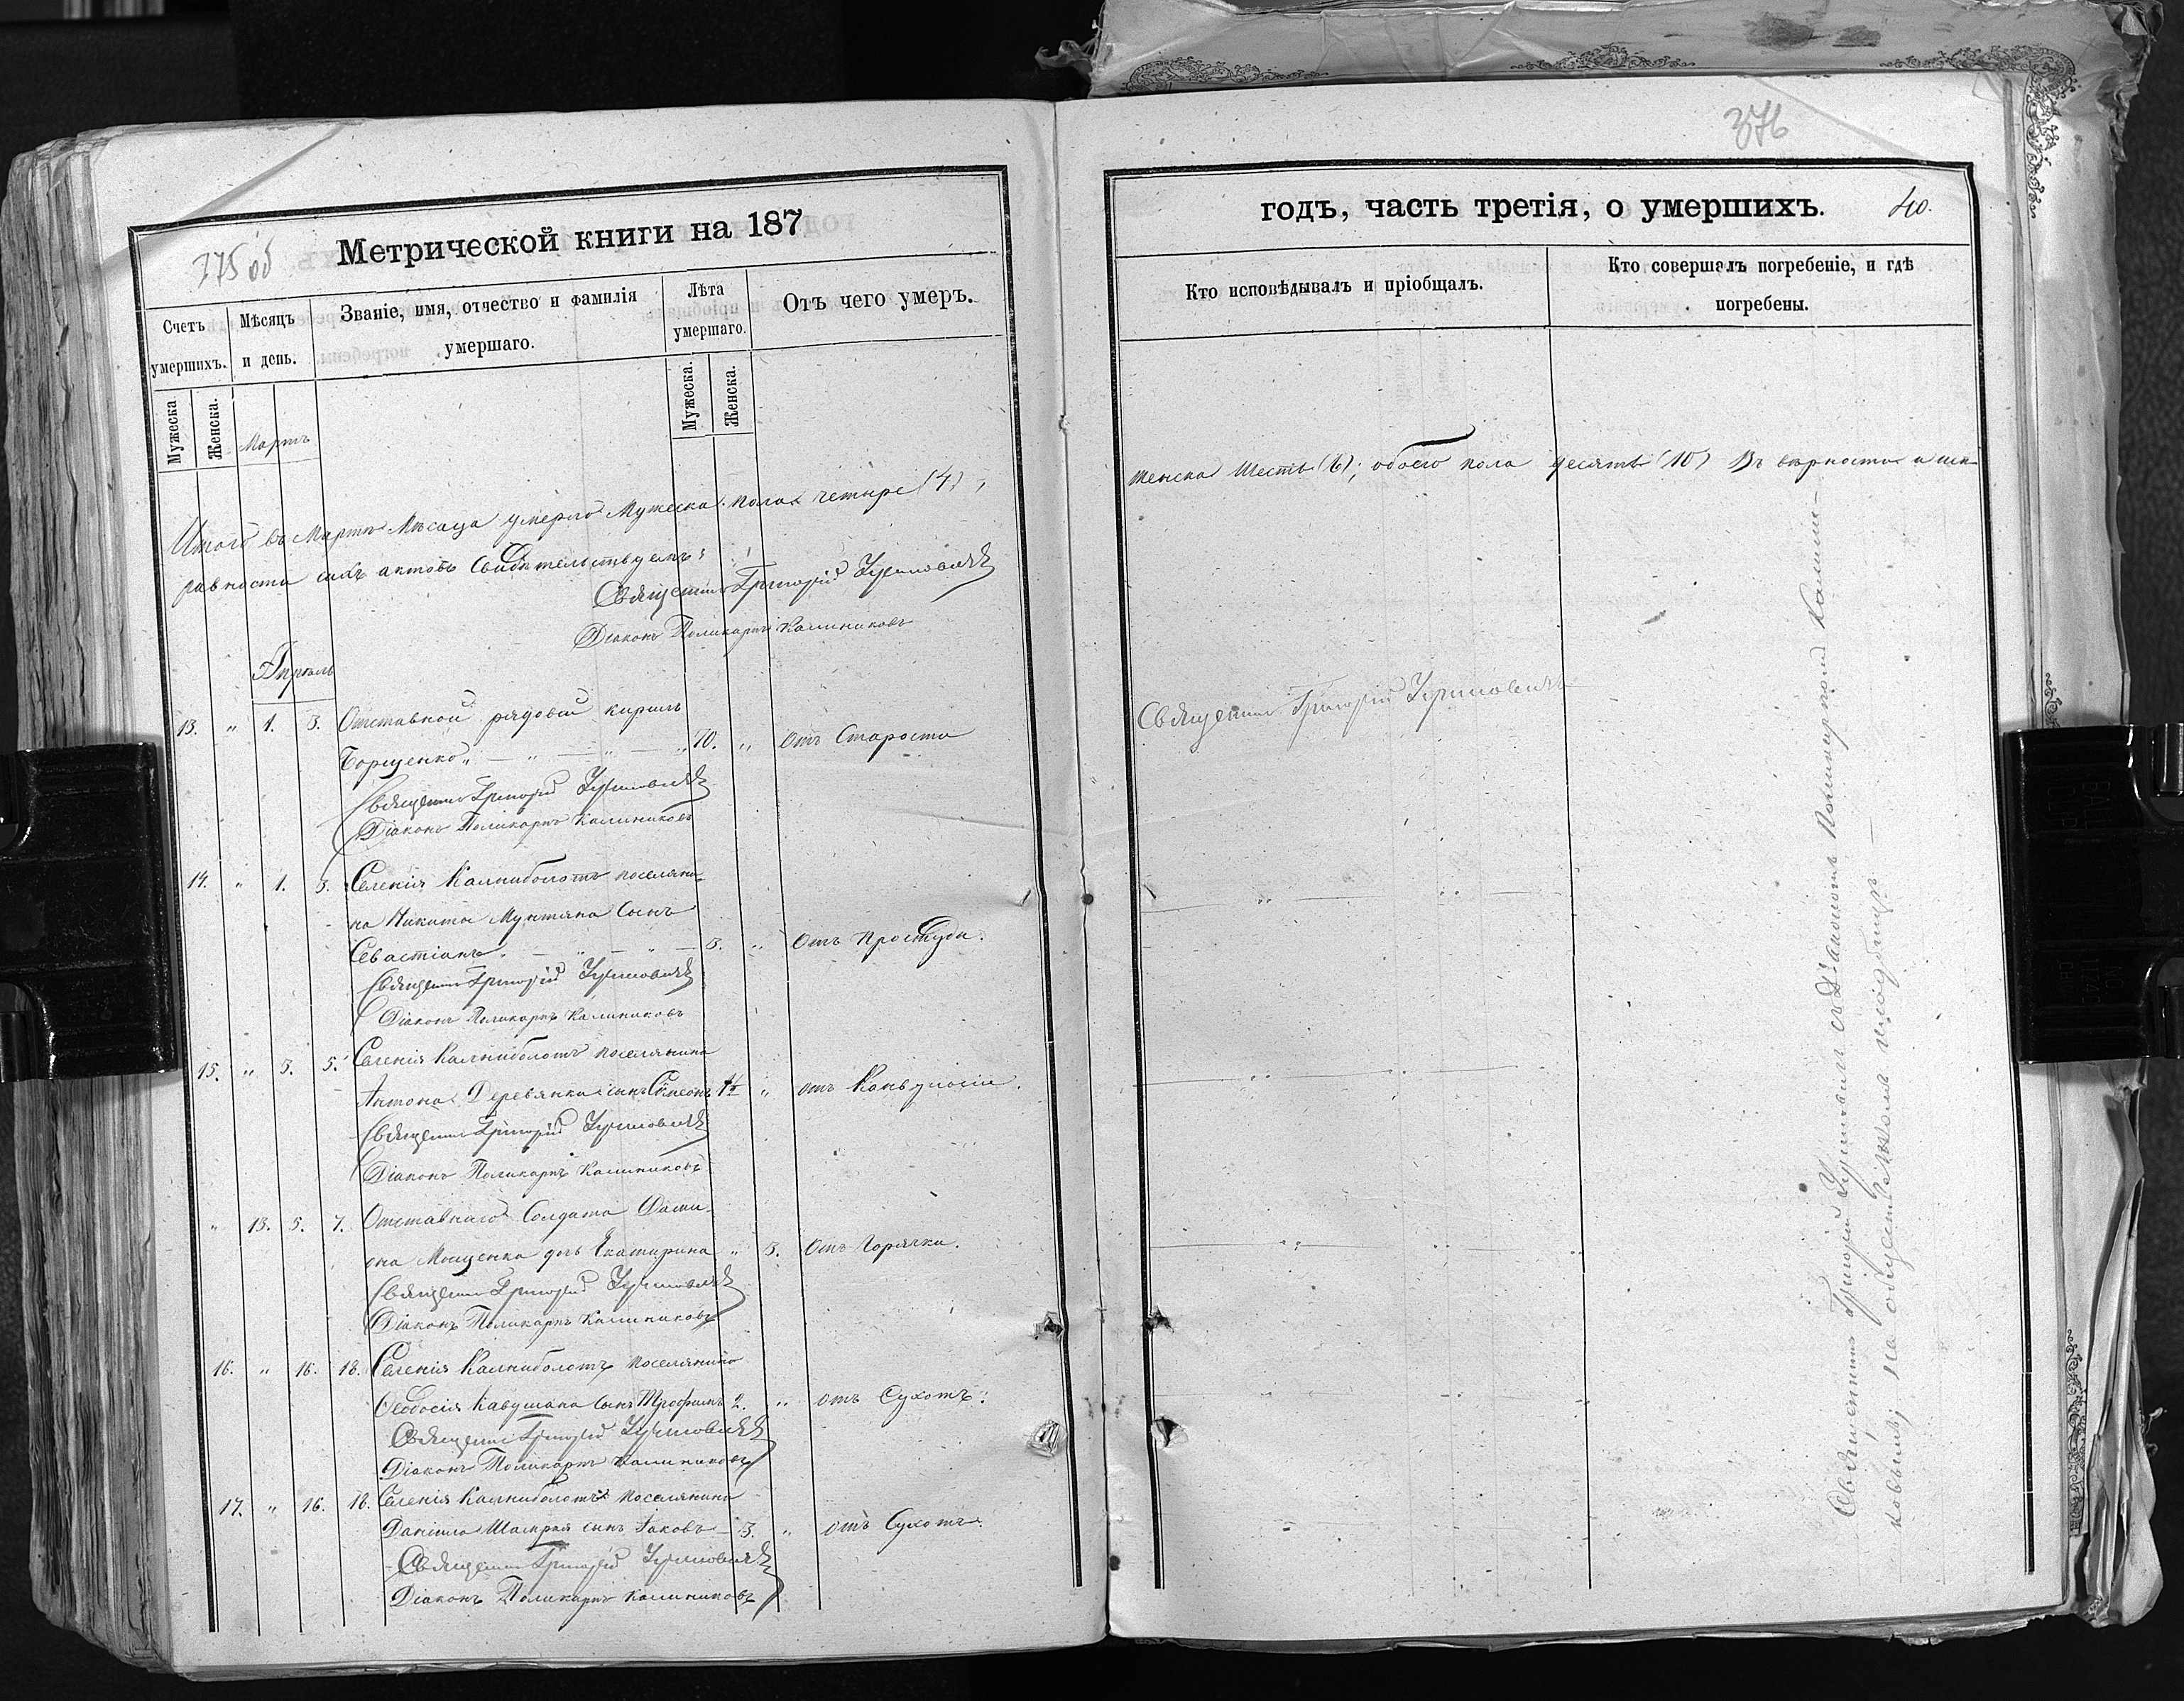 375 об
Метрической книги на 187
Счетъ умершихъ.
Мѣсяцъ и день.
Званіе, имя, отчество и фамилія умершаго.
Лѣта умершаго.
Отъ чего умеръ.
Мужеска
Женска.
Мартъ
Мужеска.
Женска.
Итого въ Мартѣ Мѣсяца умерло Мужеска пола четыре (4),
равности сихъ актовъ свидѣтельствуемъ:
Священникъ Григорій
Діаконъ Поликарпъ Калиниковъ
Апрѣль
13. „ 1. 3. Отставной рядовой Кирилъ
Борщенко „ — „ — „ 70. „ Отъ Старости
Священникъ Григорій
Діаконъ Поликарпъ Калиниковъ
14. „ 1. 3. Селенія Калниболотъ поселяни-
на Никиты Мунтяна сынъ
Севастіанъ „ — „ — „ — 3. „ Отъ простуди.
Священникъ Григорій
Діаконъ Поликарпъ Калиниковъ
15. „ 3. 5. Селенія Калниболотъ поселянина
Антона Деревянки сынъ Симеонъ „ отъ Конвулсіи.
Священникъ Григорій
Діаконъ Поликарпъ Калиниковъ
„ 13. 5. 7. Отставнаго Солдата Дами-
она Мощенка дочь Екатирина „ 3. Отъ Горячки.
Священникъ Григорій
Діаконъ Поликарпъ Калиниковъ
16. „ 16. 18. Селенія Калниболотъ поселянина
Ѳеодосія Кавушана сынъ Трофимъ 2. „ отъ Сухотъ.
Священникъ Григорій
Діаконъ Поликарпъ Калиниковъ
17. „ 16. 18. Селенія Калниболотъ поселянина
Даніила Шамрая сынъ Іаковъ — 3. „ отъ Сухотъ.
Священникъ Григорій
Діаконъ Поликарпъ Калиниковъ
376
годъ, часть третія, о умершихъ. 40.
Кто исповѣдывалъ и пріобщалъ.
Кто совершалъ погребеніе, и гдѣ погребены.
женска Шесть (6); обоего пола десять (10) Въ вѣрности и исп-
Священникъ Григорій
Священникъ Григорій съ Діакономъ Поликарпомъ Калини-
ковымъ, на общественномъ кладбищѣ —